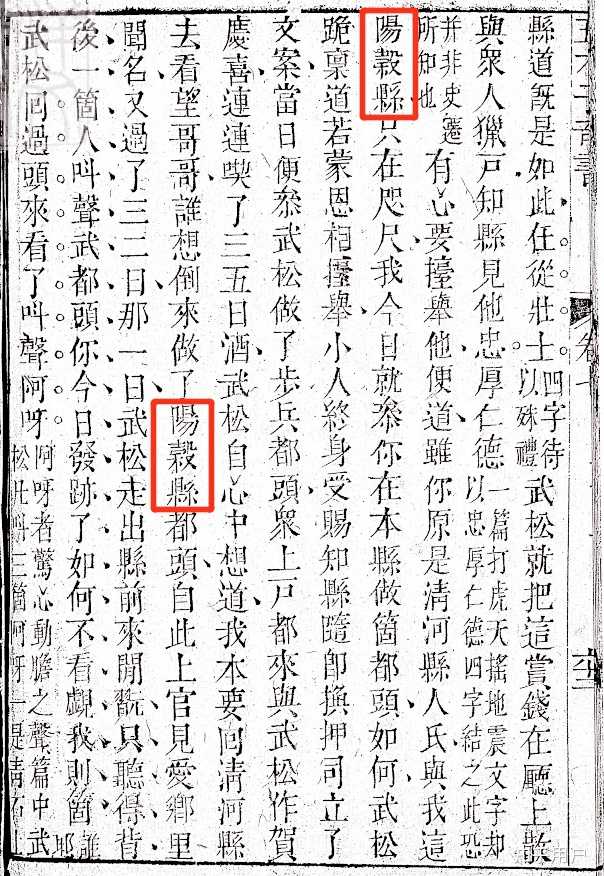 五才子奇書 卷七
縣道既是如此任從壯士四字待以殊禮武松就把這賞錢在廳上散
與衆人獵戸知縣見他忠厚仁德一篇打虎天搖地震文字却以忠厚仁德四字結之此恐
并非史遷所知也有心要擡舉他便道雖你原是淸河縣人氏與我這
陽穀縣只在咫尺我今日就叅你在本縣做箇都頭如何武松
跪禀道若蒙恩相擡舉小人終身受賜知縣隨卽換押司立了
文案當日便叅武松做了步兵都頭衆上戸都來與武松作賀
慶喜連連喫了三五日酒武松自心中想道我本要囘淸河縣
去看望哥哥誰想倒來做了陽穀縣都頭自此上官見愛鄉里
聞名又過了三二日那一日武松走出縣前來閒翫只聽得背
後一箇人叫聲武都頭你今日發跡了如何不看覷我則箇誰耶
武松囘過頭來看了叫聲阿呀阿呀者驚心動膽之聲篇中武松三箇阿呀一是